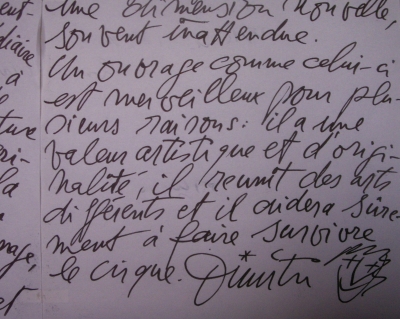 ent-
diaire
à
e
ture
ri-
la
nage,
et
une dimension nouvelle,
souvent inattendue.
Un ouvrage comme celui-ci
est merveilleux pour plu-
sieurs raisons: il a une
valeur artistique et d'origi-
nalité, il reunit des arts
différents et il aidera sûre-
ment à faire survivre
le cirque. Dimitri